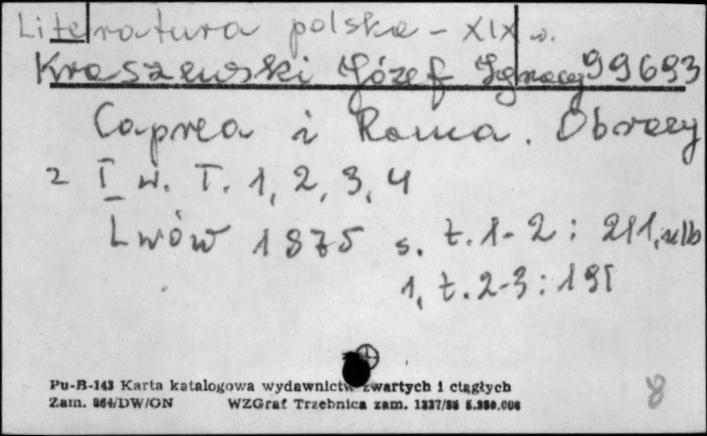 Literatura polska - XIX w.
Kraszewski Józef Ignacy 99693
Caprea i Roma. Obrazy
z I w. T. 1, 2, 3, 4
Lwów 1875 s. t. 1-2 : 211, nlb
1, t. 2-3 : 191
Pu-B-143 Karta katalogowa wydawnictw zwartych i ciągłych
Zam. 864/DW/ON WZGraf Trzebnica zam.
8